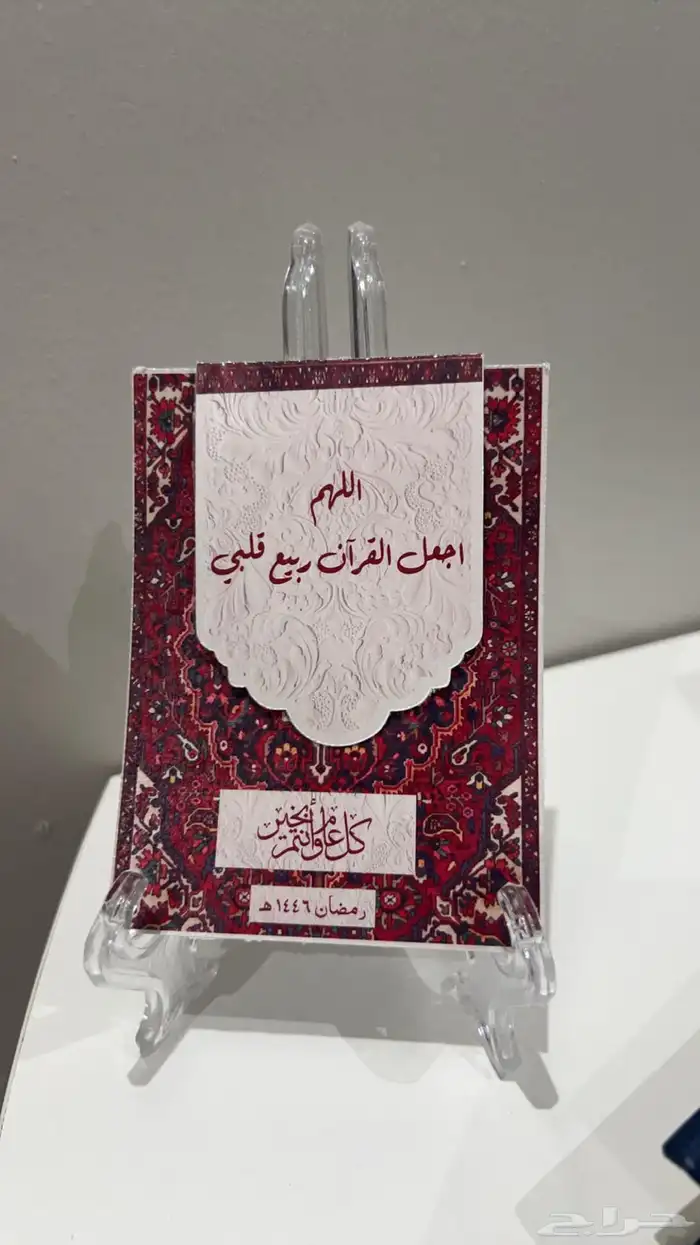 اللهم
اجعل القرآن ربيع قلبي
كل عام وأنتم بخير
رمضان ١٤٤٦ هـ
حراج